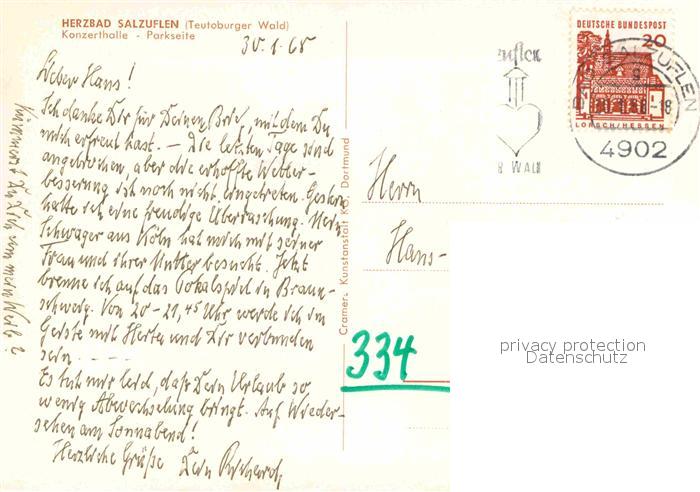 HERZBAD SALZUFLEN (Teutoburger Wald)
Konzerthalle - Parkseite
30.1.68
Lieber Hans!
Ich danke Dir für Deinen Brief, mit dem Du
mich erfreut hast. — Die letzten Tage sind
angebrochen, aber die erhoffte Wetter-
besserung ist noch nicht eingetreten. Gestern
hatte ich eine freudige Überraschung. Mein
Schwager aus Köln hat mich mit seiner
Frau und ihrer Mutter besucht. Jetzt
brenne ich auf das Pokalspiel in Braun-
schweig. Von 20 - 21,45 Uhr werde ich im
Geiste mit Herta und Dir verbunden
sein - - - -
Es tut mir leid, daß Dein Urlaub so
wenig Abwechselung bringt. Auf Wieder-
sehen am Sonnabend!
Herzliche Grüße Dein Richard
Kümmerst Du Dich um mein Weib?
Cramers Kunstanstalt KG, Dortmund
DEUTSCHE BUNDESPOST
20
LORSCH/HESSEN
ZUFLEN
-18
4902
zuflen
R WALD
Herrn
Hans-
334
privacy protection
Datenschutz